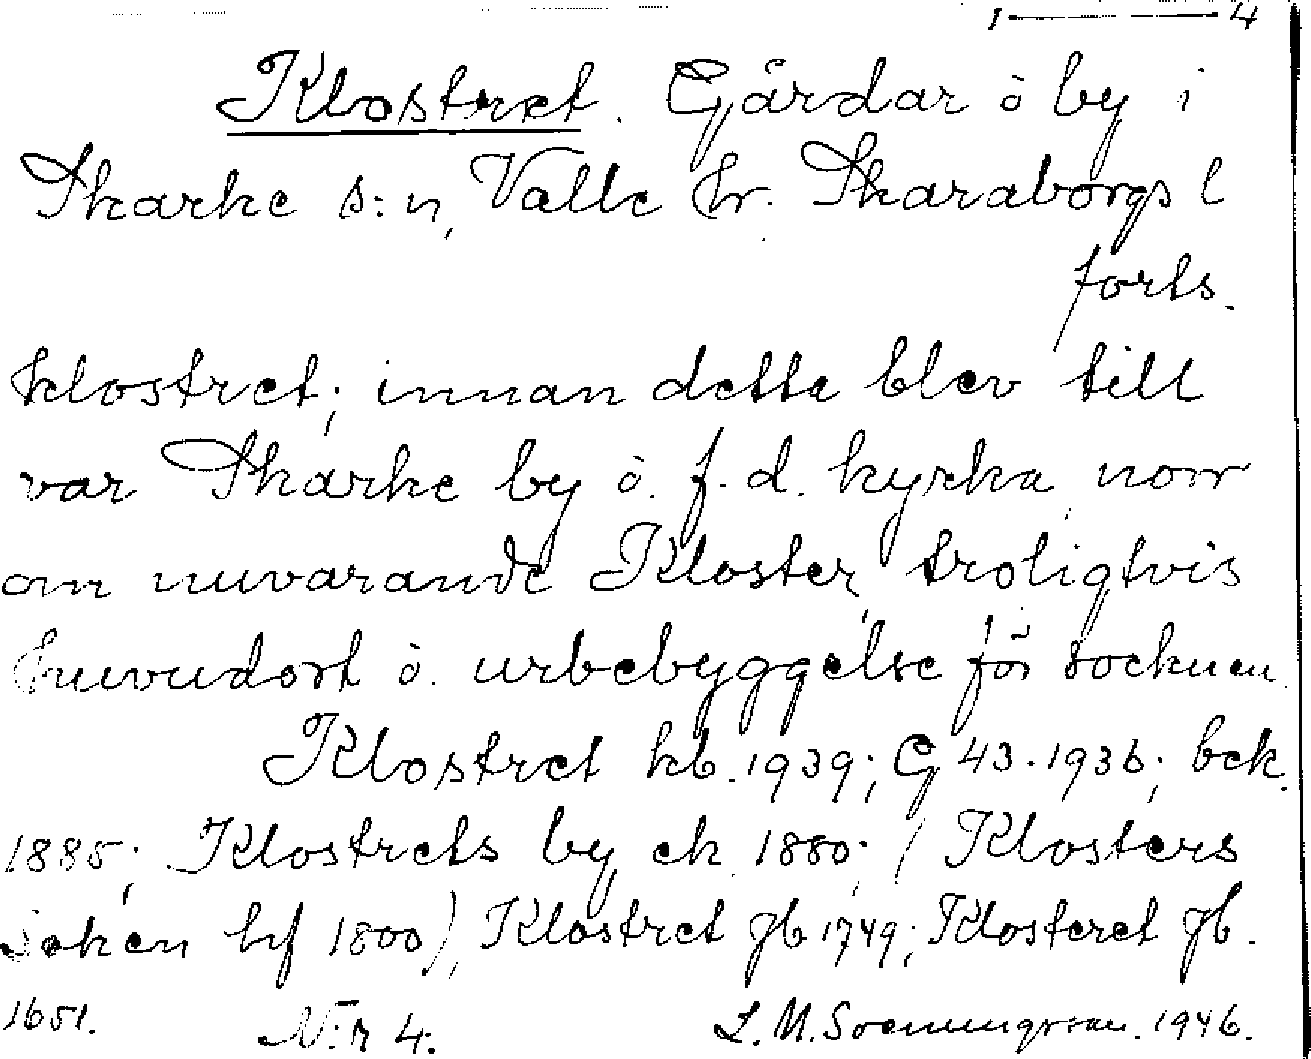 1 — 4
Klostret. Gårdar o by i
Skarke s:n, Valle hr. Skaraborgs l
forts.
klostret; innan detta blev till
var Skarke by o. f.d. kyrka, norr
om nuvarande Kloster, troligtvis
huvudort o. urbebyggelse för socknen.
Klostret kb. 1939; G 43. 1936; bek.
1885; Klostrets by ek 1880; (Klosters
soken hf 1800), Klostret jb 1749; Klosteret jb.
1651. N:r 4. 1946.